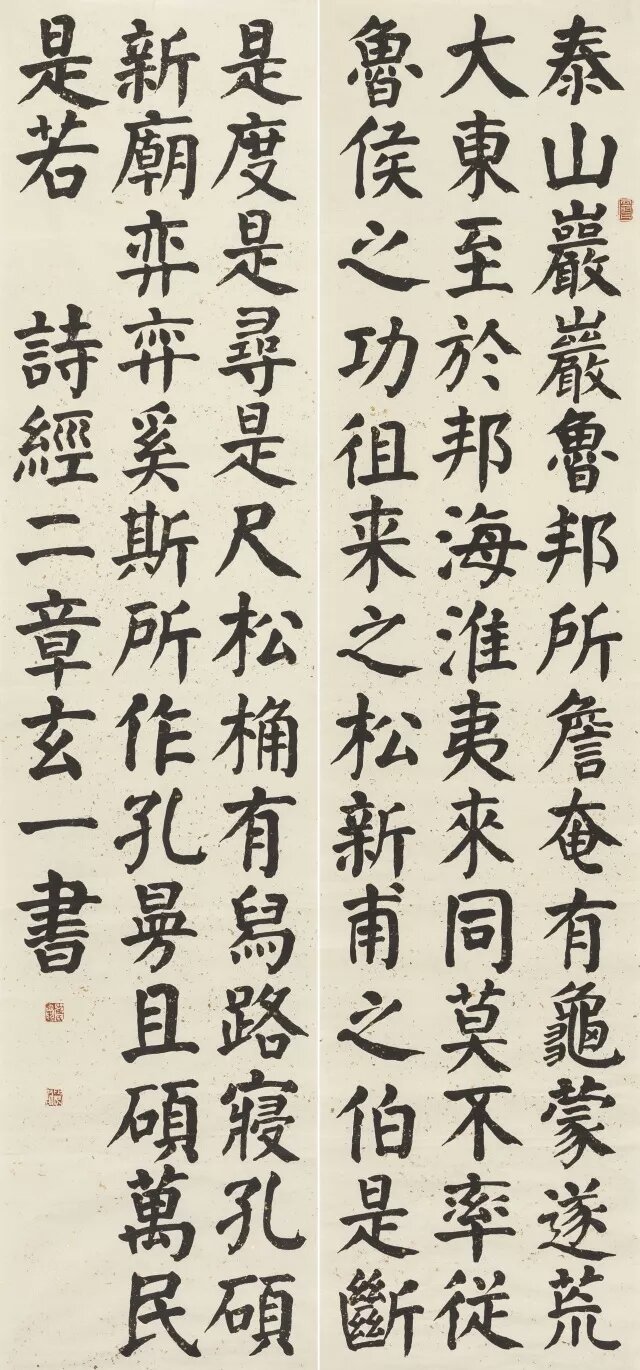 泰山巖巖魯邦所詹奄有龜蒙遂荒
大東至於邦海淮夷來同莫不率従
魯侯之功徂来之松新甫之伯是斷
是度是尋是尺松桷有舄路寢孔碩
新廟弈弈奚斯所作孔曼且碩萬民
是若 詩經二章玄一書